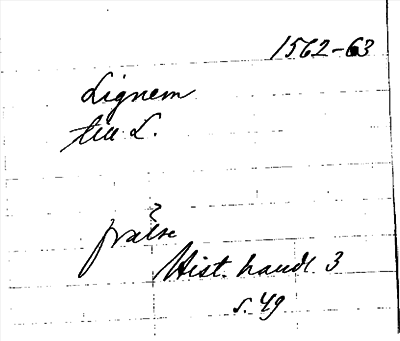 1562-63
Lignem
till L.
frälse
Hist. handl. 3
s. 49